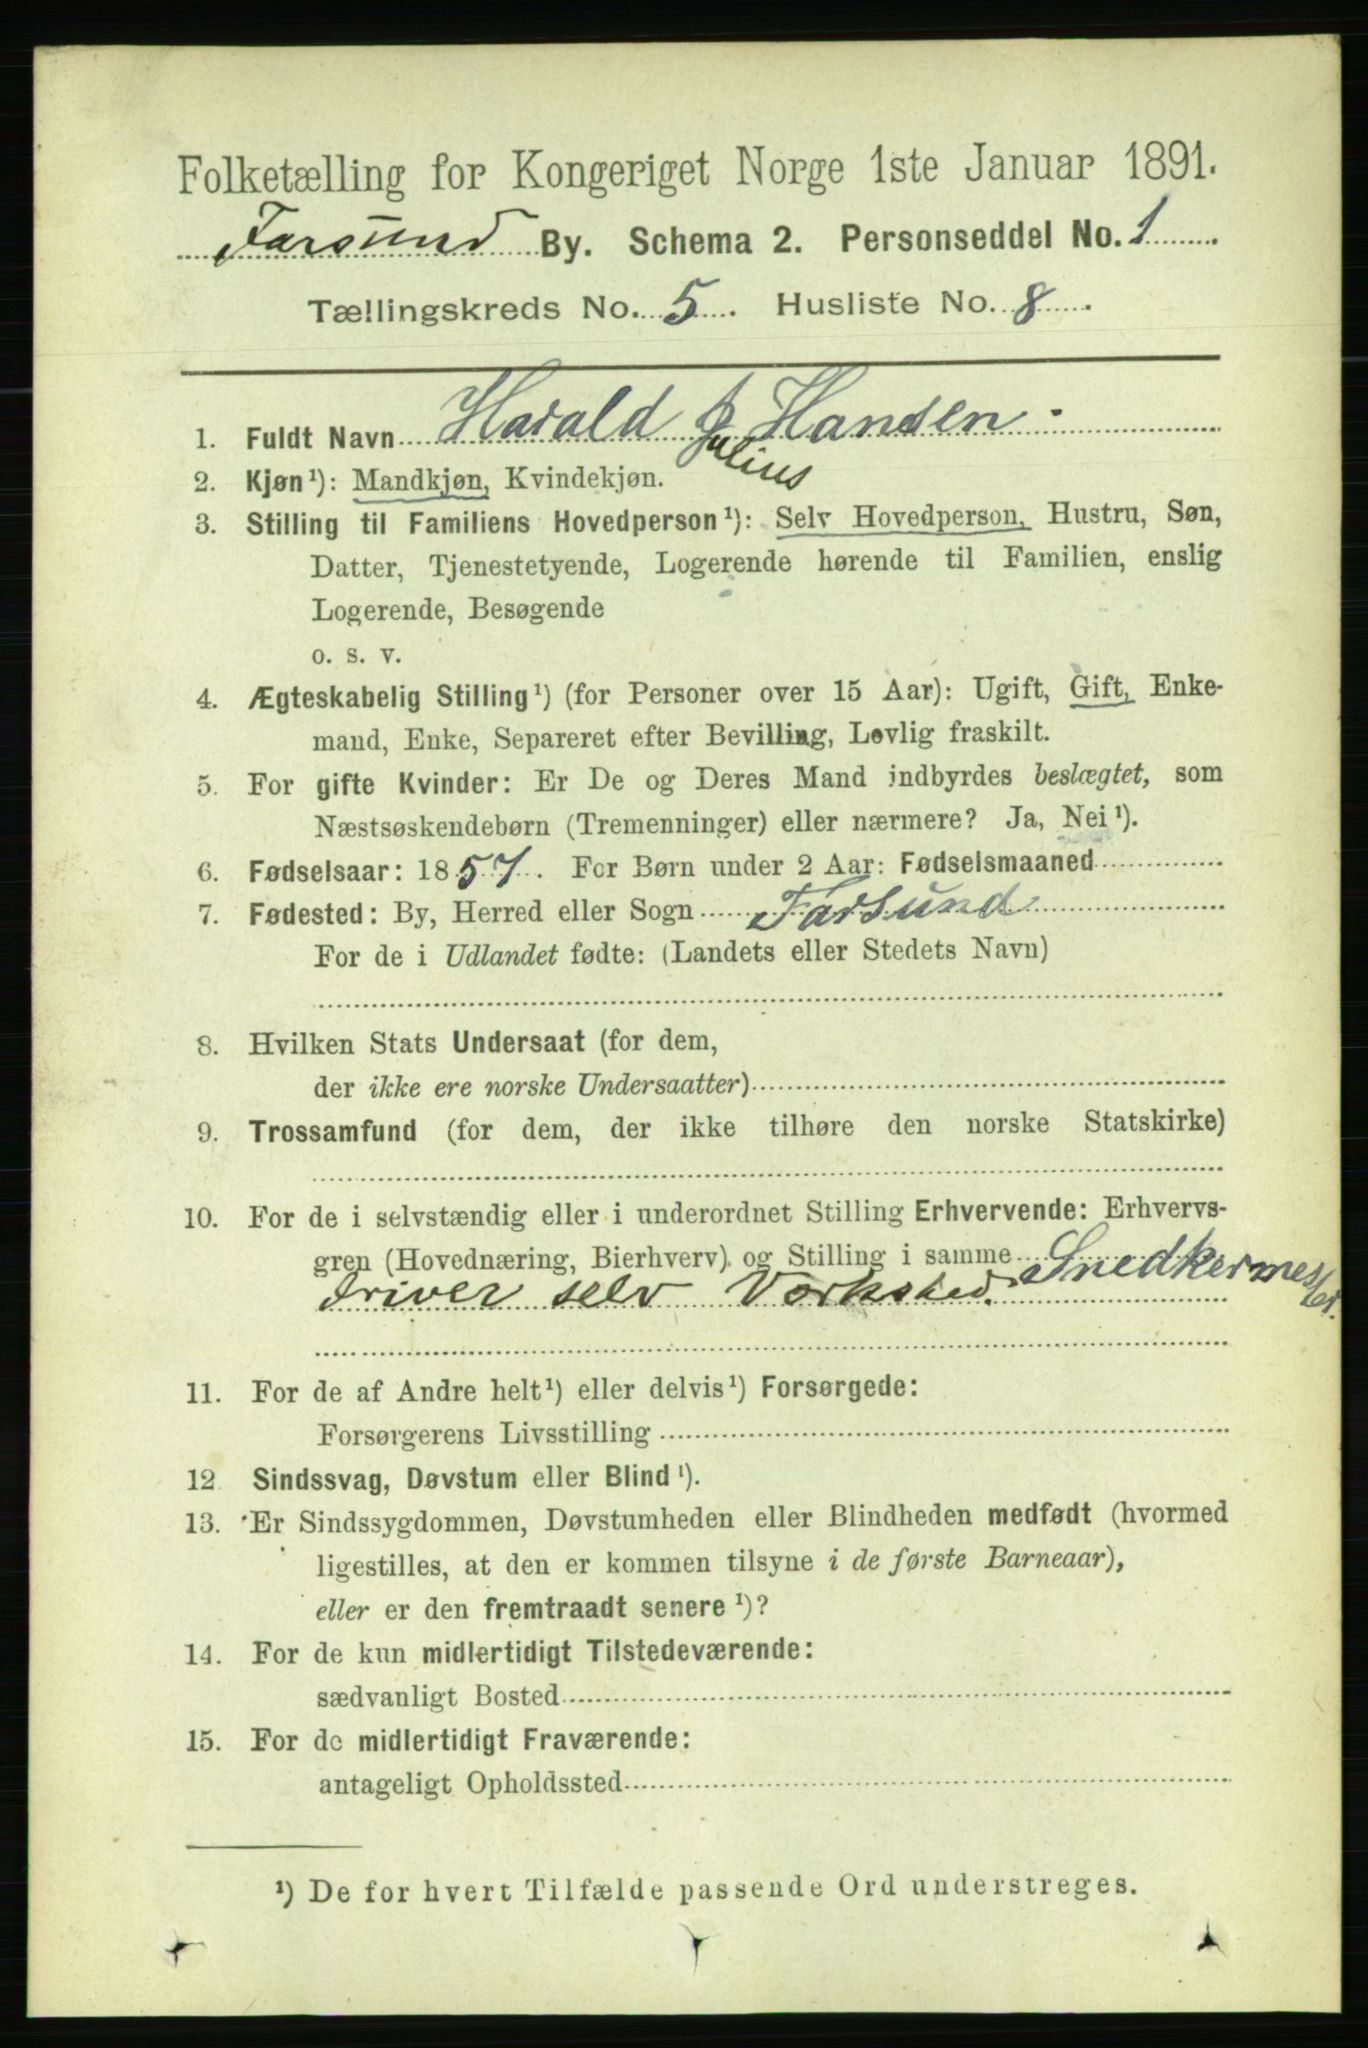 Folketælling for Kongeriget Norge 1ste Januar 1891.
Farsund By. Schema 2. Personseddel No. 1
Tællingskreds No. 5. Husliste No. 8.
1. Fuldt Navn Harald J Hansen.
ulius
2. Kjøn¹): Mandkjøn, Kvindekjøn.
3. Stilling til Familiens Hovedperson¹): Selv Hovedperson, Hustru, Søn,
Datter, Tjenestetyende, Logerende hørende til Familien, enslig
Logerende, Besøgende
o. s. v.
4. Ægteskabelig Stilling¹) (for Personer over 15 Aar): Ugift, Gift, Enke-
mand, Enke, Separeret efter Bevilling, Lovlig fraskilt.
5. For gifte Kvinder: Er De og Deres Mand indbyrdes beslægtet, som
Næstsøskendebørn (Tremenninger) eller nærmere? Ja, Nei¹).
6. Fødselsaar: 1857. For Børn under 2 Aar: Fødselsmaaned
7. Fødested: By, Herred eller Sogn Farsund
For de i Udlandet fødte: (Landets eller Stedets Navn)
8. Hvilken Stats Undersaat (for dem,
der ikke ere norske Undersaatter)
9. Trossamfund (for dem, der ikke tilhøre den norske Statskirke)
10. For de i selvstændig eller i underordnet Stilling Erhvervende: Erhvervs-
gren (Hovednæring, Bierhverv) og Stilling i samme Snedkermester.
driver selv Værksted.
11. For de af Andre helt¹) eller delvis¹) Forsørgede:
Forsørgerens Livsstilling
12 Sindssvag, Døvstum eller Blind¹).
13. Er Sindssygdommen, Døvstumheden eller Blindheden medfødt (hvormed
ligestilles, at den er kommen tilsyne i de første Barneaar),
eller er den fremtraadt senere¹)?
14. For de kun midlertidigt Tilstedeværende:
sædvanligt Bosted
15. For de midlertidigt Fraværende:
antageligt Opholdssted
¹) De for hvert Tilfælde passende Ord understreges.